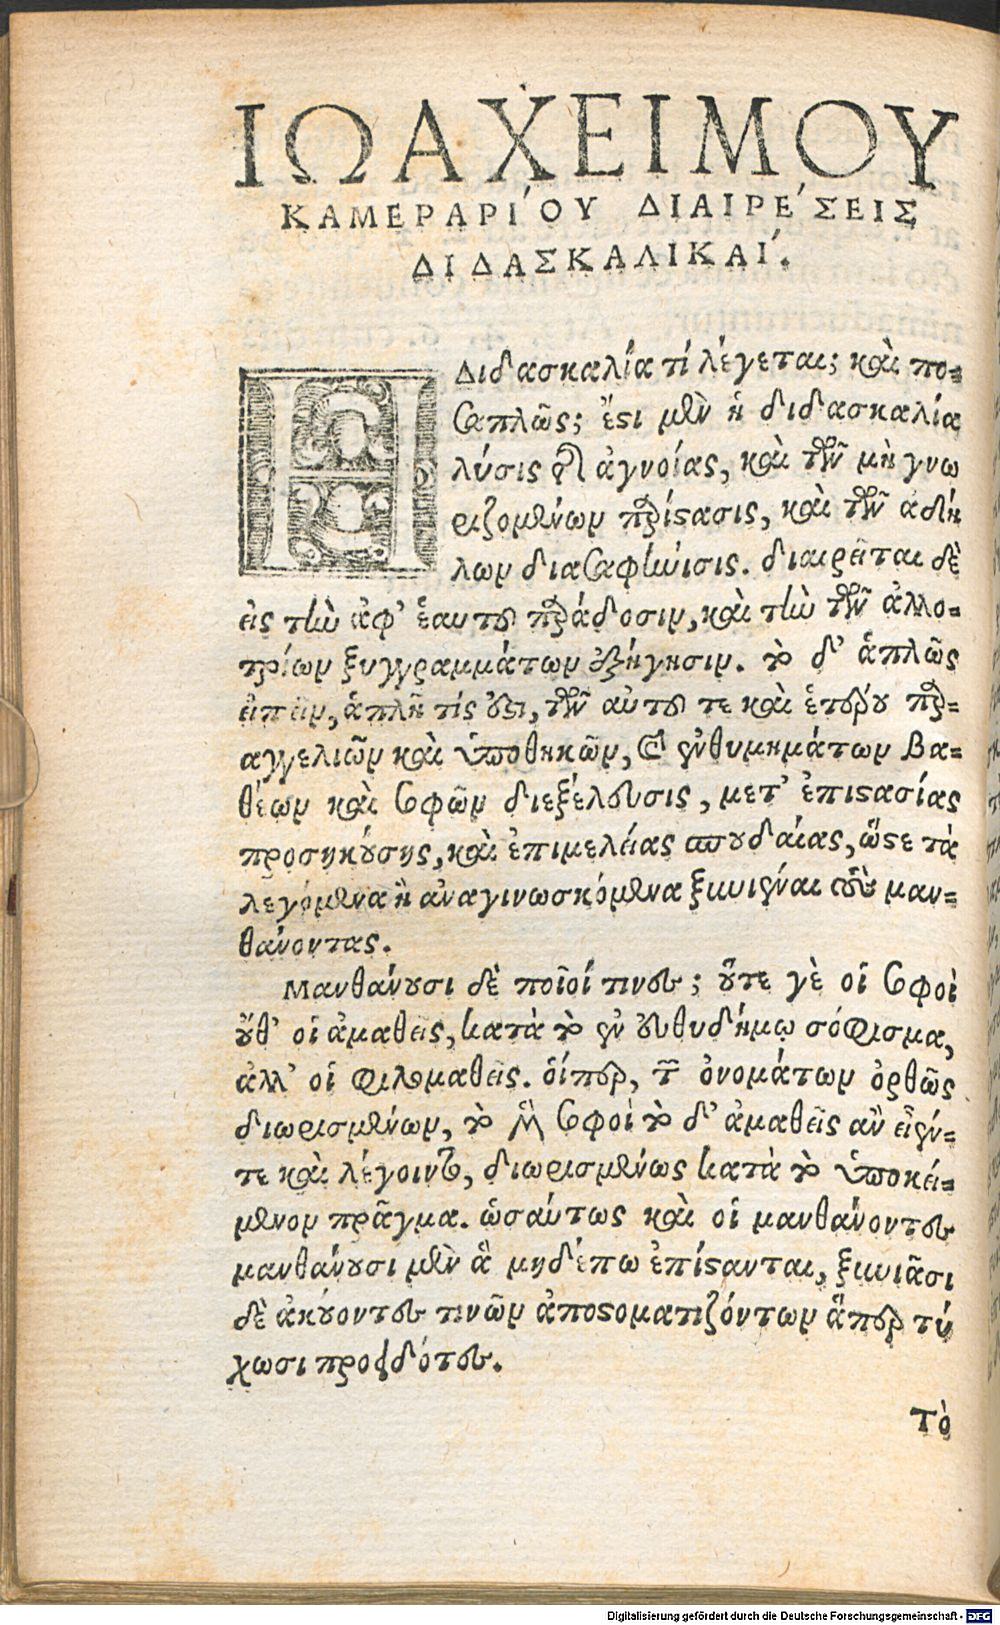 ΙΩΑΧΕΙΜΟΥ
ΚΑΜΕΡΑΡΙ´ΟΥ ΔΙΑΙΡΕ´ΣΕΙΣ
ΔΙΔΑΣΚΑΛΙΚΑΙ´.
Η Διδασκαλία τί λέγεται; καὶ πο-
σαπλῶς; ἔστι μὲν ἡ διδασκαλία
λύσις τῆς ἀγνοίας, καὶ τῶν μὴ γνω
ριζομένων παράστασις, καὶ τῶν ἀδή
λων διασαφήνισις. διαιρεῖται δὲ
εἰς τὴν ἀφ' ἑαυτοῦ παράδοσιν, καὶ τὴν τῶν ἀλλο-
τρίων ξυγγραμμάτων ἐξήγησιν. τὸ δ' ἁπλῶς
εἰπεῖν, ἁπλῆ τίς ἐστι, τῶν αὐτοῦ τε καὶ ἑτέρου παρ-
αγγελιῶν καὶ ὑποθηκῶν, καὶ ἐνθυμημάτων βα-
θέων καὶ σοφῶν διεξέλευσις, μετ' ἐπιστασίας
προσηκούσης, καὶ ἐπιμελείας σπουδαίας, ὥστε τὰ
λεγόμενα ἢ ἀναγινωσκόμενα ξυνιέναι τοὺς μαν-
θάνοντας.
Μανθάνουσι δὲ ποῖοί τινες; οὔτε γε οἱ σοφοὶ
οὔθ' οἱ ἀμαθεῖς, κατὰ τὸ ἐν εὐθυδήμῳ σόφισμα,
ἀλλ' οἱ φιλομαθεῖς. οἵπερ, τῶν ὀνομάτων ὀρθῶς
διωρισμένων, τὸ μὲν σοφοὶ τὸ δ' ἀμαθεῖς ἂν εἶέν-
τε καὶ λέγοιντο, διωρισμένως κατὰ τὸ ὑποκεί-
μενον πρᾶγμα. ὡσαύτως καὶ οἱ μανθάνοντες
μανθάνουσι μὲν ἃ μηδέπω ἐπίστανται, ξυνιᾶσι
δὲ ἀκούοντες τινῶν ἀποστοματιζόντων ἅπερ τύ
χωσι προειδότες.
Τὸ
Digitalisierung gefördert durch die Deutsche Forschungsgemeinschaft - DFG